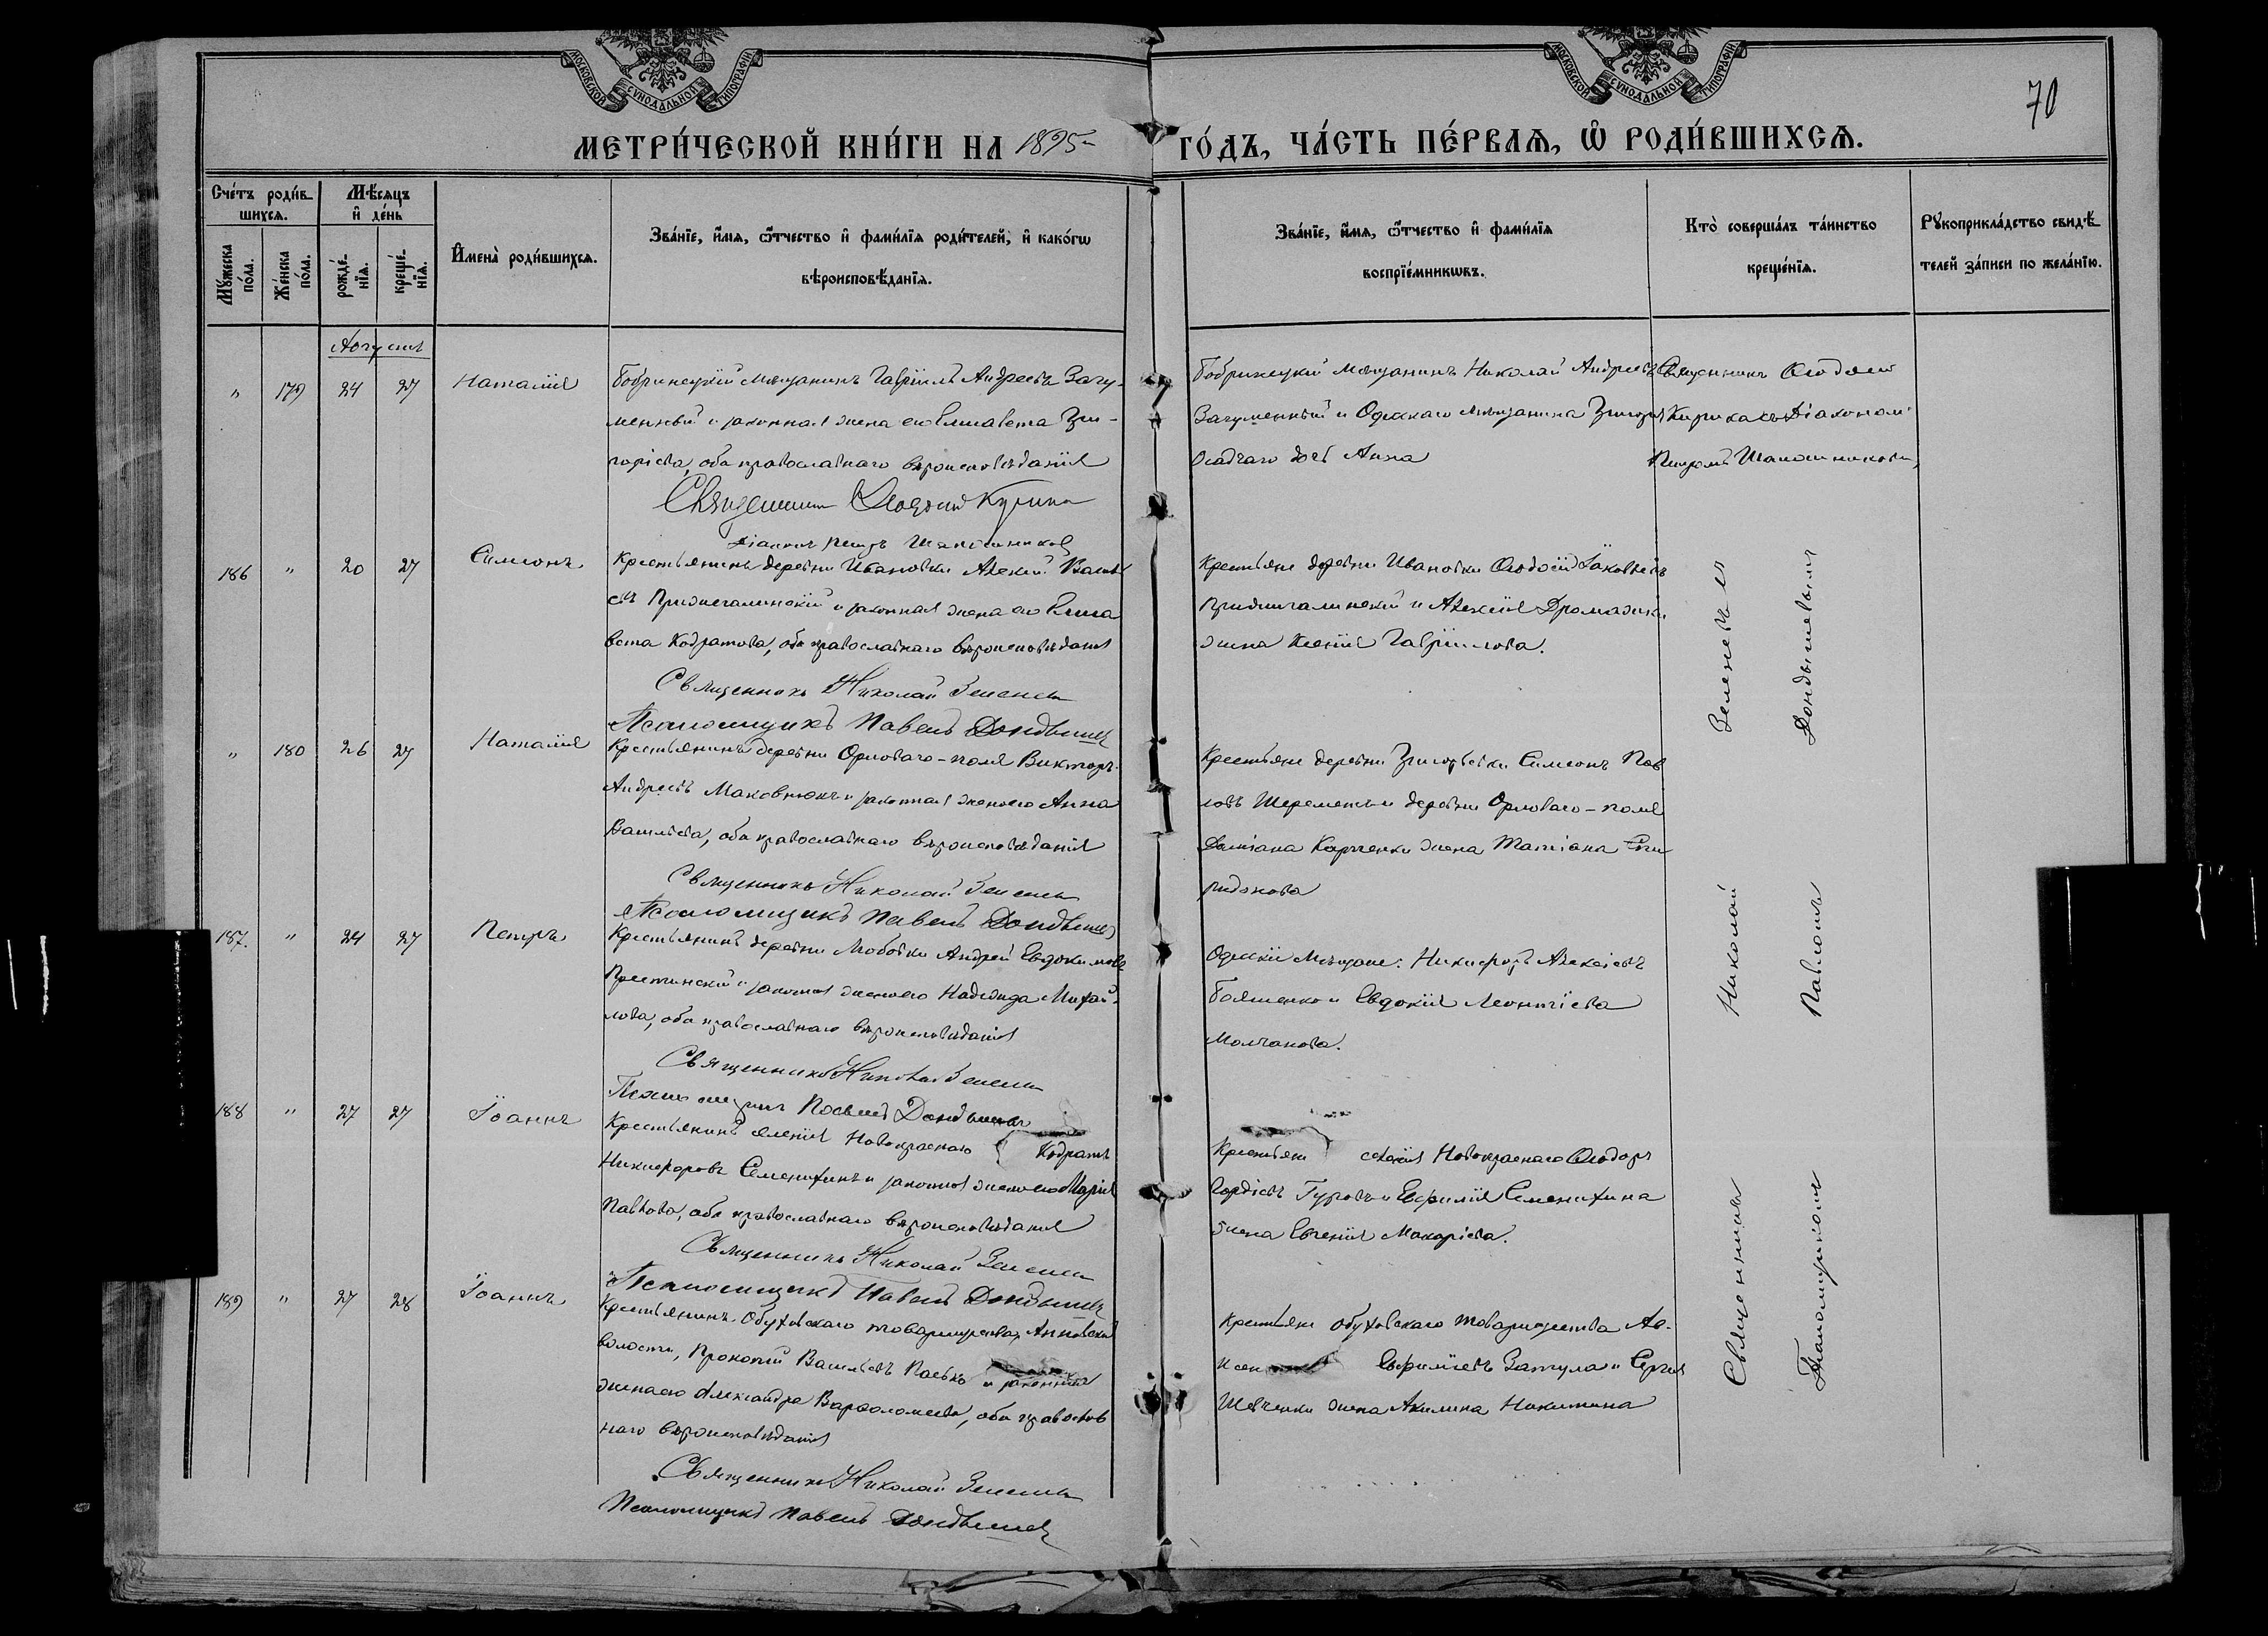 МОСКОВСКОЙ СУНОДАЛЬНОЙ ТИПОГРАФІИ
МОСКОВСКОЙ СУНОДАЛЬНОЙ ТИПОГРАФІИ
70
МЕТРИ́ЧЕСКОЙ КНИ́ГИ НА 1895 ГО́ДЪ, ЧА́СТЬ ПЕ́РВАЯ, Ѽ РОДИ́ВШИХСЯ.
Сче́тъ роди́в-
шихся.
Мѣ́сяцъ
и҆ де́нь
Мꙋ́жеска по́ла.
Же́нска по́ла.
рожде́-нїѧ.
креще́-нїѧ.
И҆мена̀ роди́вшихся.
Зва́нїе, и҆́мѧ, ѻ҆́тчество и҆ фами́лїѧ роди́телей, и҆ како́гѡ
вѣроисповѣ́данїѧ.
Зва́нїе, и҆́мѧ, ѻ҆́тчество и҆ фами́лїѧ
воспрїе́мникѡвъ.
Кто̀ соверша́лъ та́инство
креще́нїѧ.
Рꙋкоприкла́дство свидѣ́-
телей за́писи по жела́нїю.
Августъ
" 179 24 27 Наталія
Бобринецкій мѣщанинъ Гавріилъ Андреевъ Загу-
менный и законная жена его Елисавета Гри-
горіева, оба православнаго вѣроисповѣданія
Священникъ Ѳеодосій
Діаконъ Петръ Шапошниковъ
Бобринецкій мѣщанинъ Николай Андреевъ
Загуменный и Одесскаго мѣщанина Григорія
Осадчаго дочь Анна
Священникъ Ѳеодосій
Діакономъ
Петромъ Шапошниковымъ
186 " 20 27 Симеонъ
Крестьянинъ деревни Ивановки Алексій Василь-
евъ и законная жена его Елиса-
вета Кодратова, оба православнаго вѣроисповѣданія
Священникъ Николай Зеленевъ
Псаломщикъ Павелъ Дондышевъ
Крестьяне деревни Ивановки Ѳеодосій Іаковлевъ
и Алексія
жена Ксенія Гавріилова.
" 180 26 27 Наталія
Крестьянинъ деревни Орловаго-поля Викторъ
Андреевъ Маковнюкъ и законная жена его Анна
Васильева, оба православнаго вѣроисповѣданія
Священникъ Николай Зеленевъ
Псаломщикъ Павелъ Дондышевъ
Крестьяне деревни Григорьевки Симеонъ Пав-
ловъ Шереметъ и деревни Орловаго-поля
Даміана Карпенки жена Татіана Спи-
ридонова
187. " 24 27 Петръ
Крестьянинъ деревни Любовки Андрей Евдокимовъ
и законная жена его Надежда Михай-
лова, оба православнаго вѣроисповѣданія
Священникъ Николай Зеленевъ
Псаломщикъ Павелъ Дондышевъ
Одесскіе мѣщане: Никифоръ Алексіевъ
и Евдокія Леонтіева
Молчанова.
188 " 27 27 Іоаннъ
Крестьянинъ селенія Новокраснаго Кодратъ
Никифоровъ Семенихинъ и законная жена его Марія
Павлова, оба православнаго вѣроисповѣданія
Священникъ Николай Зеленевъ
Псаломщикъ Павелъ Дондышевъ
Крестьяне селенія Новокраснаго Ѳеодоръ
Гордіевъ Гуровъ и Семенихина
жена Евгенія Макаріева.
189 " 27 28 Іоаннъ
Крестьянинъ Обуховскаго товарищества, Анновской
волости, Прокопій Васильевъ Пасько и законная
жена его Александра Варѳоломеева, оба православ-
наго вѣроисповѣданія
Священникъ Николай Зеленевъ
Псаломщикъ Павелъ Дондышевъ
Крестьяне Обуховскаго товарищества
Евфиміевъ Затула и Сергія
Шевченки жена Акилина Никитина
Священникъ Николай Зеленевъ и
Псаломщикомъ Павломъ Дондышевымъ